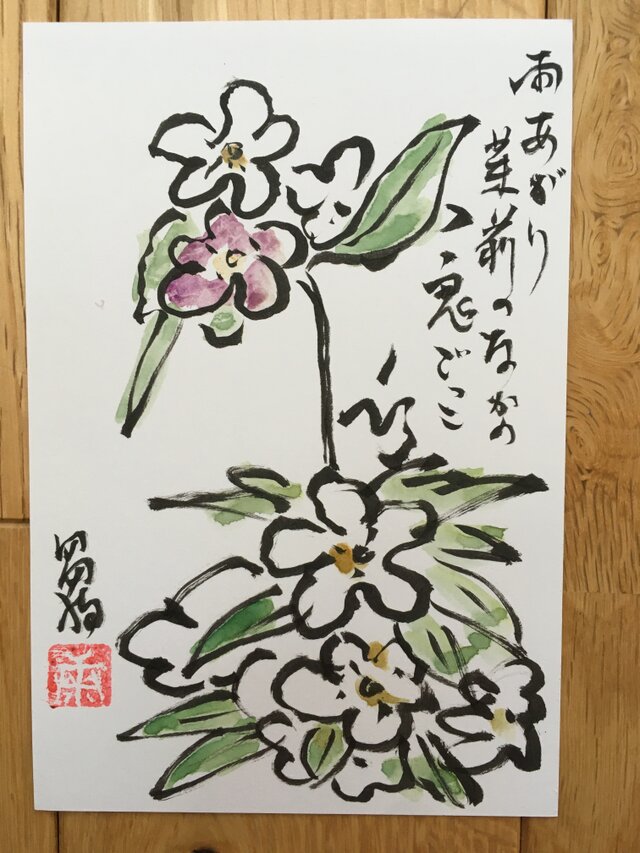 雨あがり
茉莉のなかの
鬼ごっこ